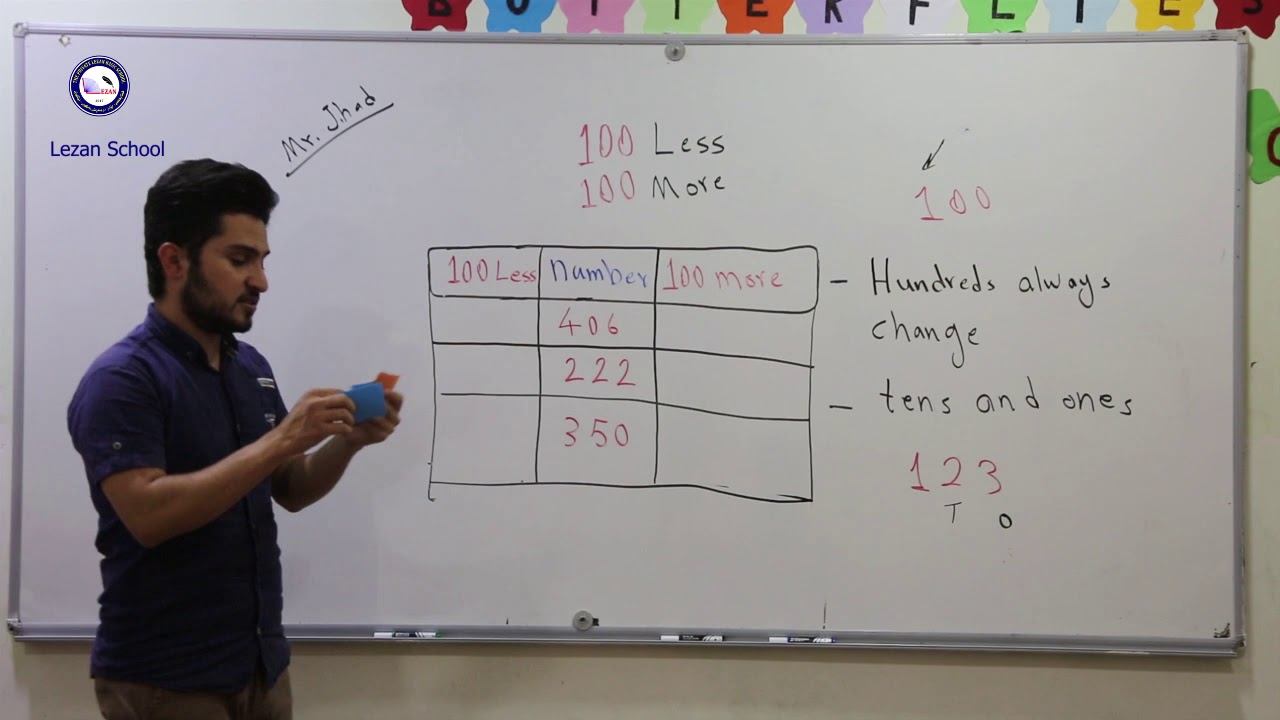 BUTTERFLIES
LEZAN
Lezan School
Mr. Jihad
100 Less
100 More
100
100 Less number 100 more
406
222
350
- Hundreds always
change
- tens and ones
123
T O